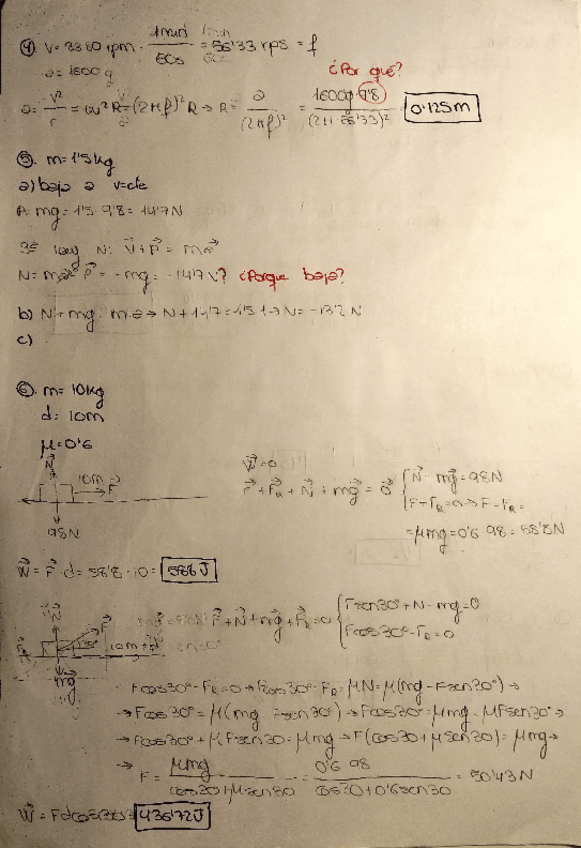 ④ V = 3380 rpm · 1min/60s = 56'33 rps = f
a = 1600 g
¿Por qué?
a = v²/r = ω²R = (2πf)²R → R = a/(2πf)² = 1600g·9'8/(2π·56'33)² = 0'125m
⑤. m = 1'5kg
a) baja a v=cte
P = mg = 1'5·9'8 = 14'7N
N = -mg = -14'7N? ¿Porque baja?
b) N + mg = m·a → N + 14'7 = 1'5·1 → N = -13'2 N
c)
⑥. m = 10kg
d = 10m
μ = 0'6
N
10m F
98N
F + FR + N + mg = 0
N = mg = 98N
F - FR = 0 → F = FR =
= μmg = 0'6·98 = 58'8N
W = F·d = 58'8·10 = 588J
N F
10m
mg
F + N + mg + FR = 0
Fsen30° + N - mg = 0
Fcos30° - FR = 0
Fcos30° - FR = 0 → Fcos30° = FR = μN = μ(mg - Fsen30°) →
→ Fcos30° = μ(mg - Fsen30°) → Fcos30° = μmg - μFsen30° →
→ Fcos30° + μFsen30 = μmg → F(cos30 + μsen30) = μmg →
→ F = μmg/(cos30 + μsen30) = 0'6·98/(cos30 + 0'6sen30) = 50'43N
W = Fdcos30 = 436'72J